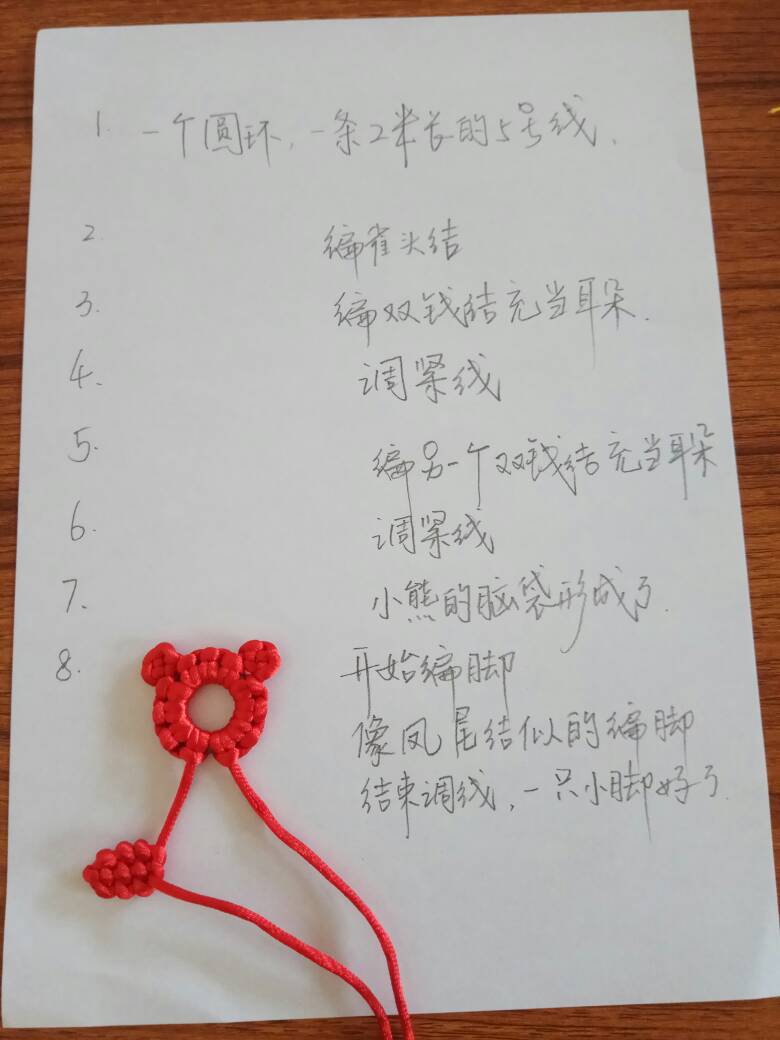 1. 一个圆环，一条2米长的5号线.
2. 编雀头结
3. 编双钱结充当耳朵.
4. 调紧线
5. 编另一个双钱结充当耳朵
6. 调紧线
7. 小熊的脑袋形成了.
8. 开始编脚
像凤尾结似的编脚
结束调线，一只小脚好了.